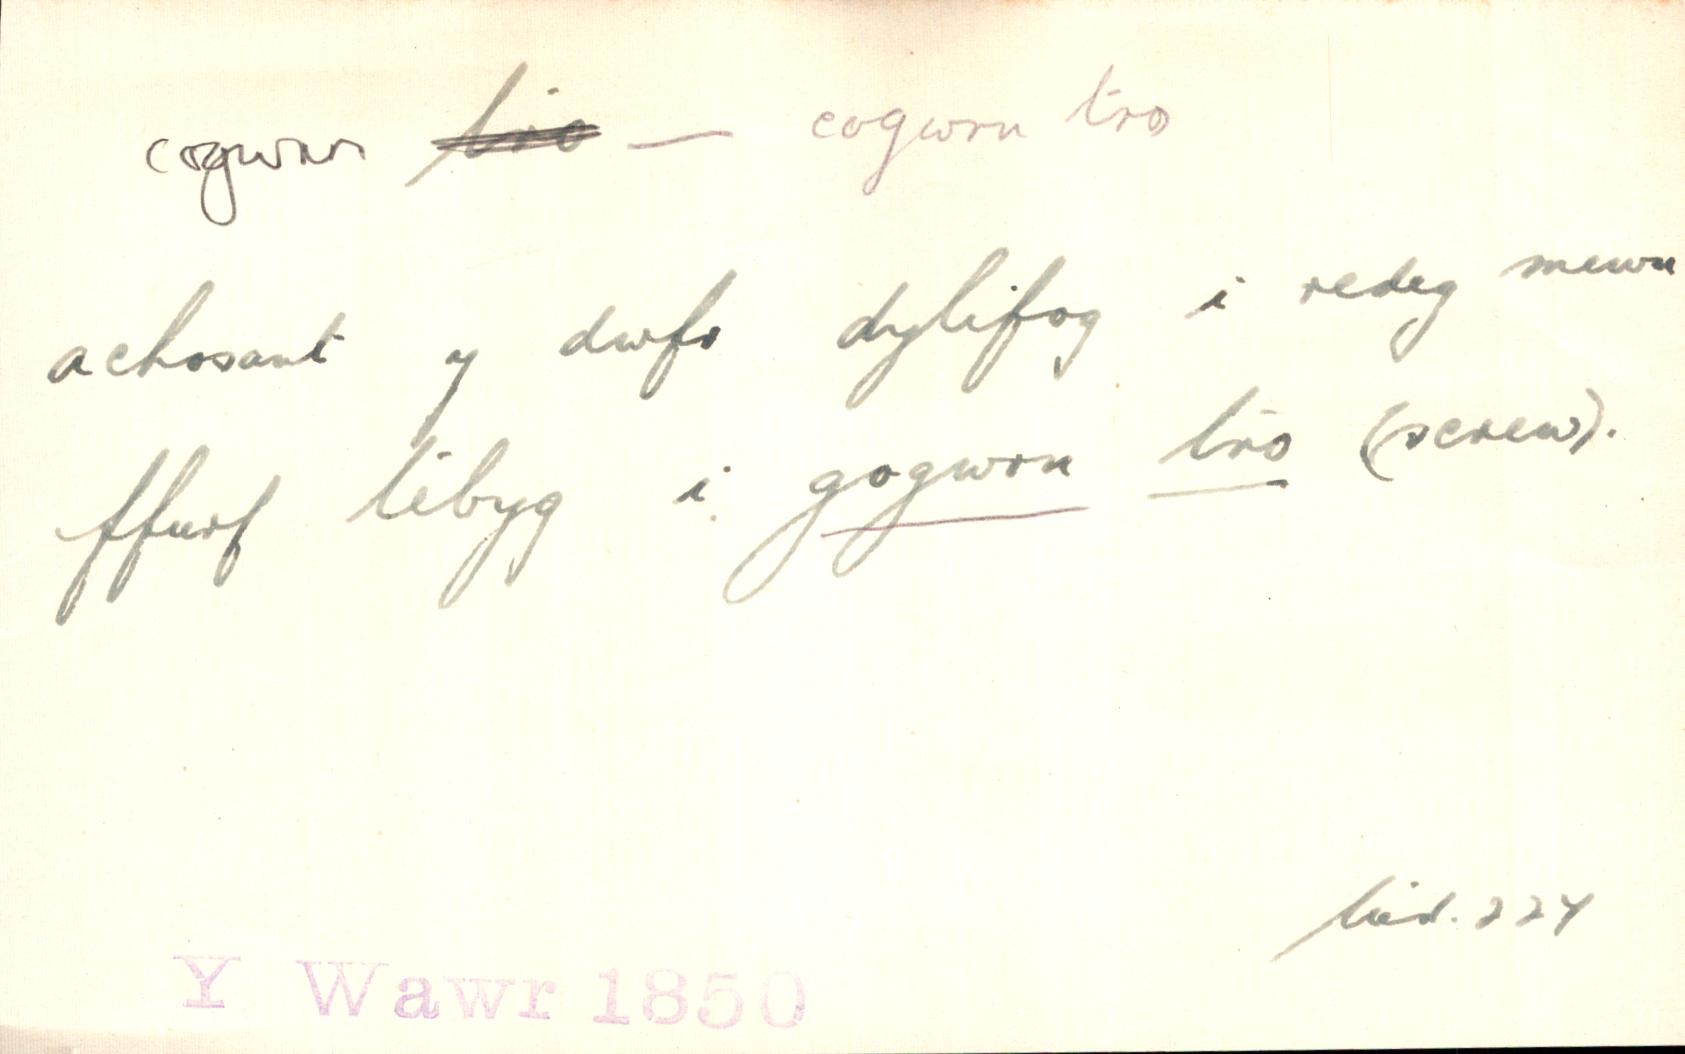 cogwrn tro — cogwrn tro
achosant y dwfr dylifog i redeg mewn
ffurf tebyg i gogwrn tro (screw).
tud. 224
Y Wawr 1850